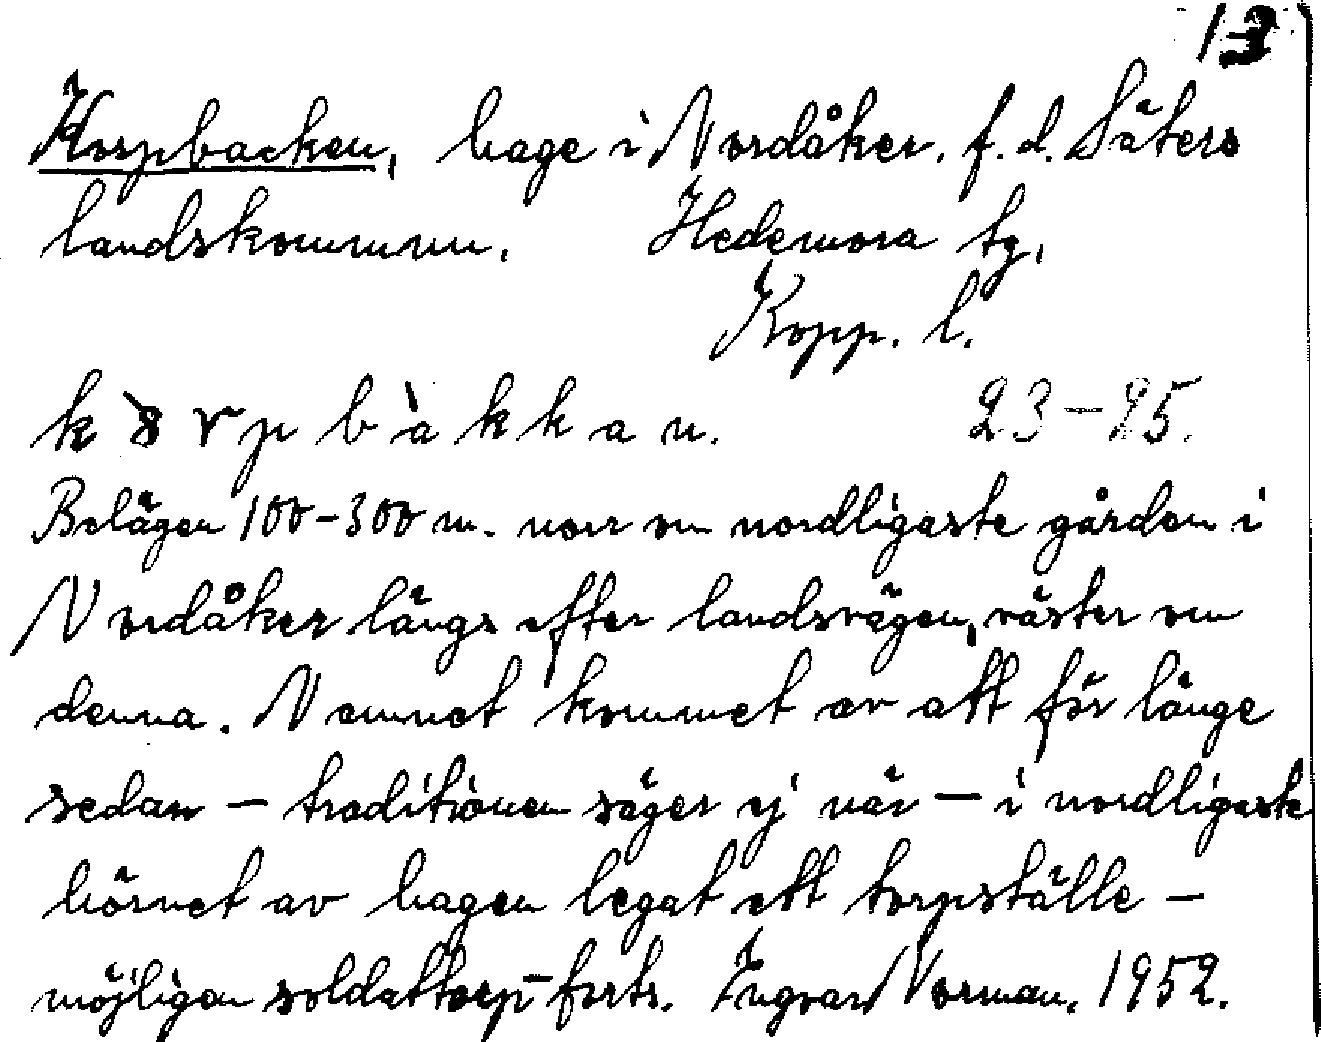 13
Korpbacken, hage i Nordåker. f.d. Säters
landskommun. Hedemora tg.
Kopp. l.
k r p b à k k a n. 23-25.
Belägen 100-300 m. norr om nordligaste gården i
Nordåker längs efter landsvägen, väster om
denna. Namnet kommet av att för länge
sedan - traditionen säger ej när - i nordligaste
hörnet av hagen legat ett torpställe -
möjligen soldattorp - forts. Ingvar Norman. 1952.